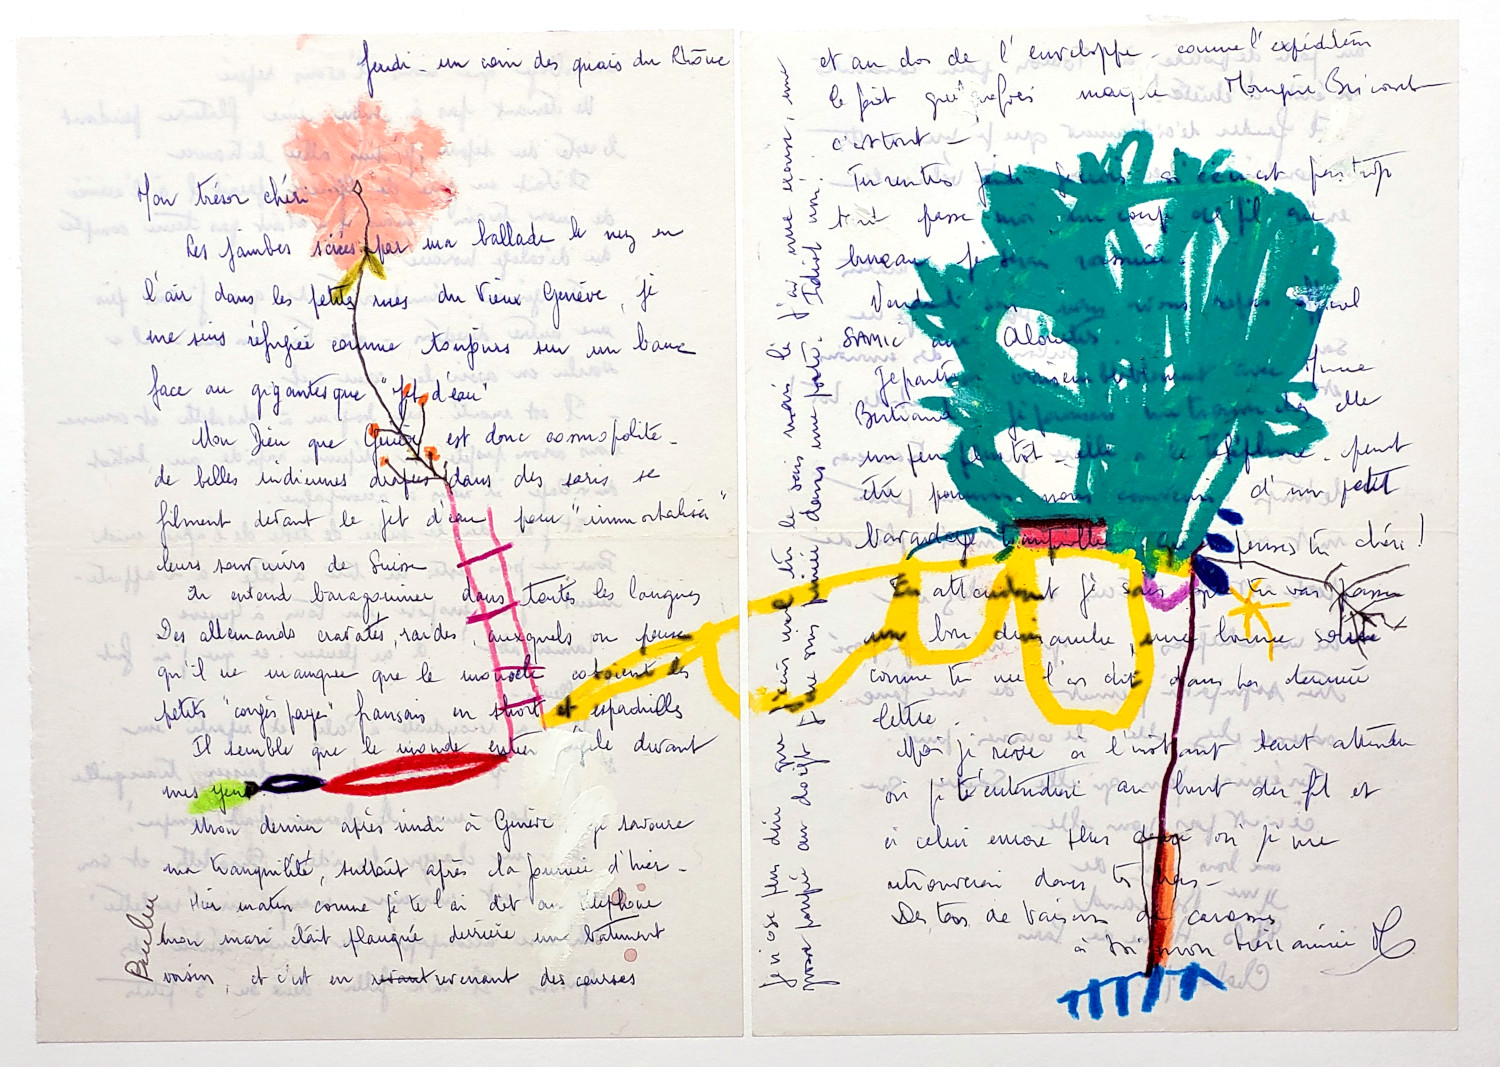 Jeudi - un coin des quais du Rhône
Mon trésor chéri
Les jambes sciées par ma ballade le nez en
l'air dans les petites rues du Vieux Genève, je
me suis réfugiée comme toujours sur un banc
face au gigantesque "Jet d'eau"
Mon Dieu que Genève est donc cosmopolite -
de belles indiennes drapées dans des saris se
filment devant le jet d'eau pour "immortaliser"
leurs souvenirs de Suisse
On entend baragouiner dans toutes les langues
Des allemands cravatés, raides auxquels on pense
qu'il ne manque que le monocle cotoient les
petits "congés payés" français en short et espadrilles
Il semble que le monde entier défile devant
mes yeux.
Mon dernier après midi à Genève je savoure
ma tranquillité, surtout après la journée d'hier -
Hier matin comme je te l'ai dit au téléphone
mon mari était planqué derrière un bâtiment
voisin, et c'est en revenant des courses
Paulu
et au dos de l'enveloppe - comme l'expéditeur
le fait quelquefois Monique Bricourt
c'est tout -
Tu rentres jeudi si ce n'est pas trop
tard passe moi un coup de fil au
bureau je serai rassurée.
Vendredi
SAMIC aux Alouettes.
Je partirai vraisemblablement avec Mme
Bertrand je passerai chez elle
un peu plus tôt - elle a le téléphone - peut
être pourrons nous convenir d'un petit
bavardage tranquille, penses tu chéri !
En attendant je sais que tu vas passer
un bon dimanche, une bonne soirée
comme tu me l'as dit dans ta dernière
lettre.
Moi je rêve à l'instant tant attendu
où je t'entendrai au bout du fil et
à celui encore plus désiré où je me
retrouverai dans tes bras -
Des tas de baisers de caresses
à toi mon bien aimé M
Je n'ose plus dire que j'écris mal tu le sais mais là j'ai une excuse, une
grosse poupée au doigt je me suis pincée dans une porte. Idiot non !